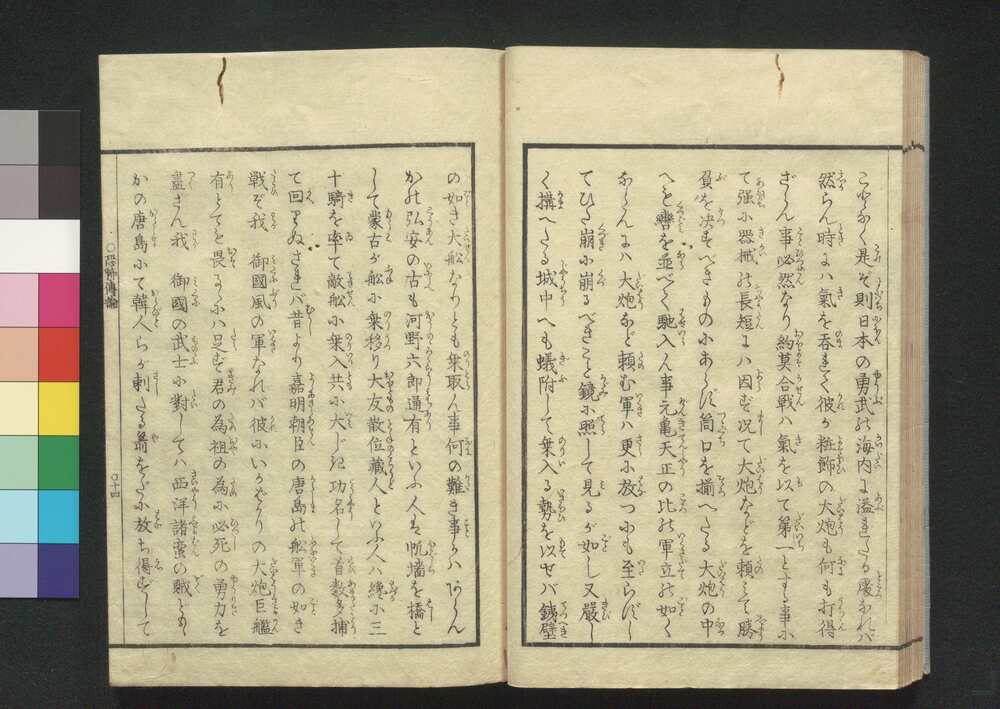 こゝろなく是ぞ則日本の勇武の海内に溢きたる處なれバ
然らん時にハ氣を呑まれて彼が粧飾の大炮も何も打得
ざらん事必然なり約莫合戰ハ氣を以て第一とする事に
て强に器械の長短にハ因らず况て大炮などを頼て勝
負を决すべきものにあらず筒口を揃へたる大炮の中
へを轡を並べて馳入ん事元亀天正の比の軍立の如く
ならんにハ大炮など頼む軍ハ更に放つにも至らずし
てひた崩に崩るべきこと鏡に照して見るが如し又嚴し
く搆へたる城中へも蟻附して乗入る勢を以セバ鐵壁
の如き大舩なりとも乗取ん事何の難き事かハあらん
かの弘安の古も河野六郎通有といふ人ハ帆墻を橋と
して蒙古が舩に乗移り大友散位藏人といふ人ハ纔に三
十騎を率て敵舩に乗入共に大じき功名して首數多捕
て回りぬされバ昔より嘉明朝臣の唐島の舩軍の如き
戰ぞ我 御國風の軍なれバ彼にいかばかりの大炮巨艦
有とても畏るゝにハ足らず君の為祖の為に必死の勇力を
盡さん我 御國の武士に對してハ西洋諸蛮の賊ども
かの唐島にて韓人らが刺たる箭をだに放ち得ずして
〇恐惶傳論
〇十四